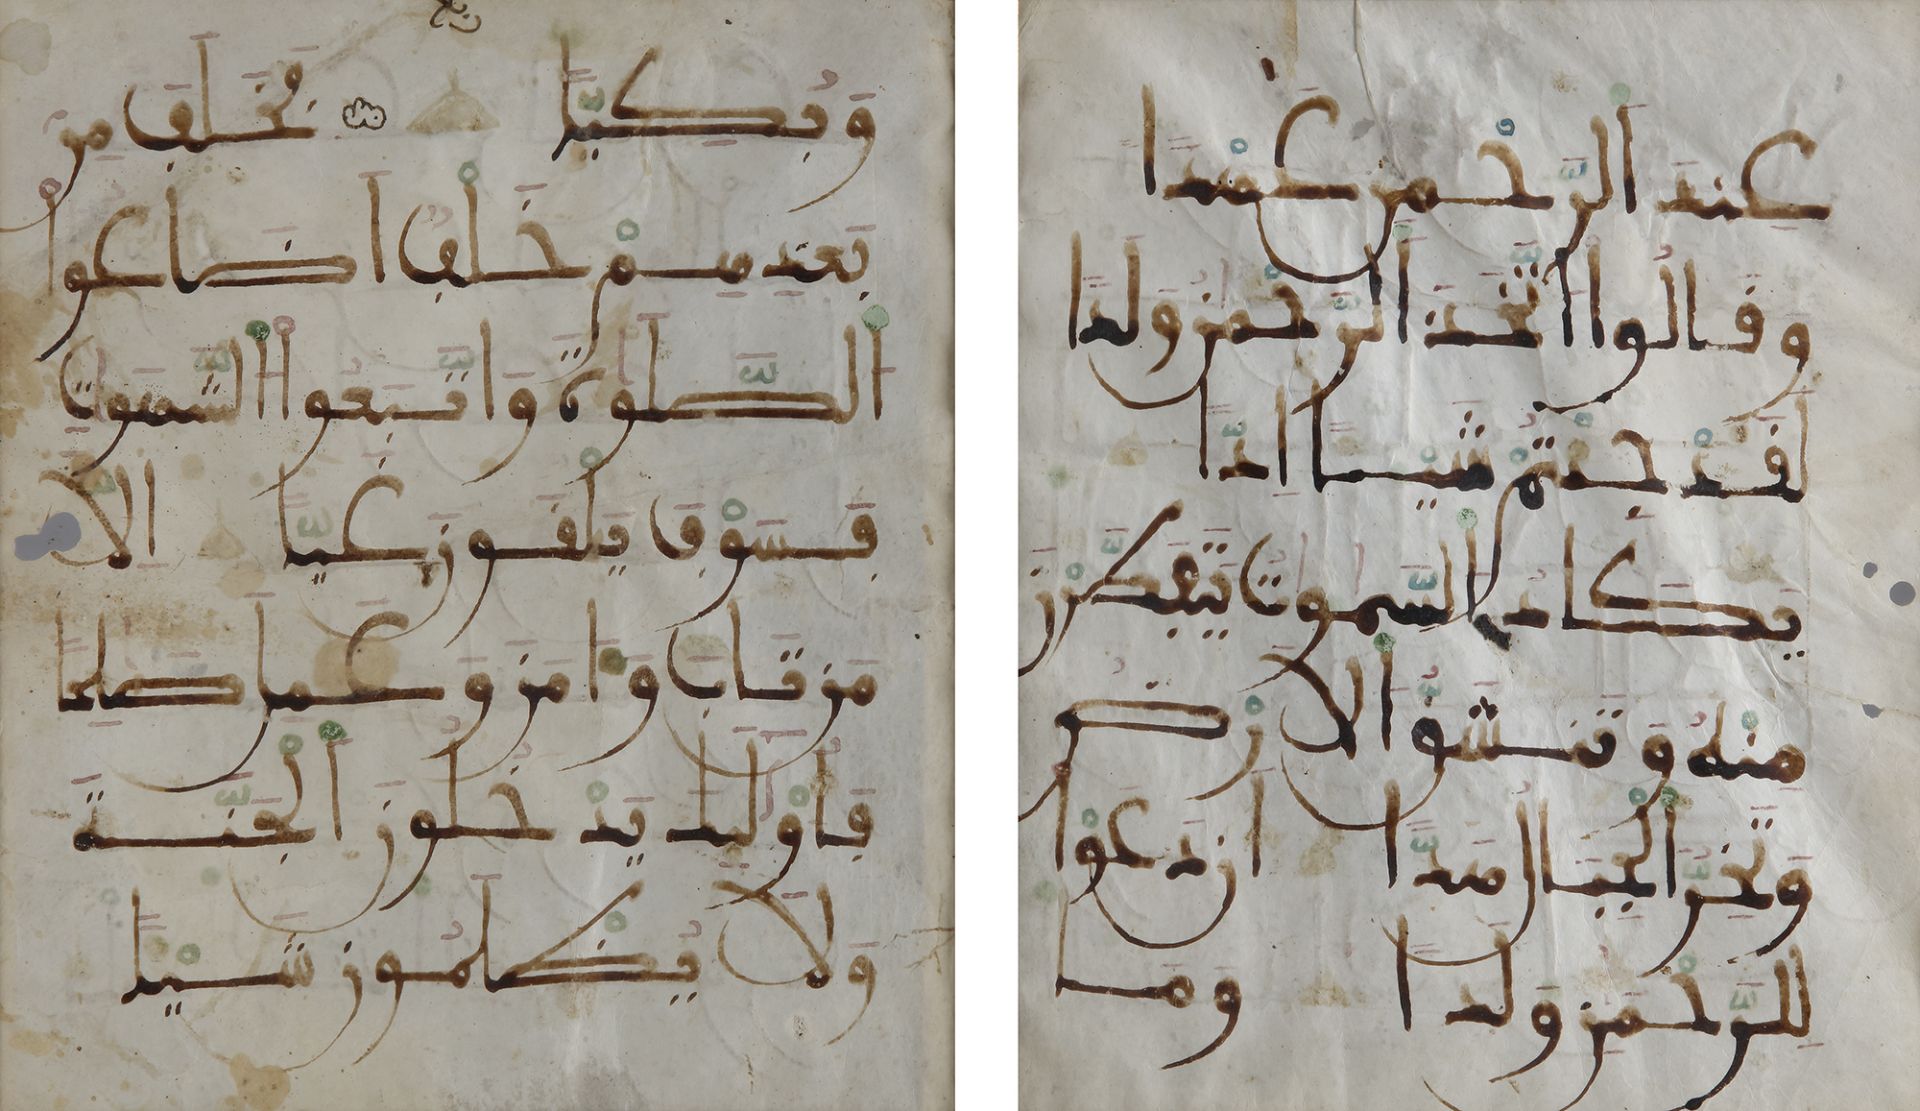 وَبُكِيًّا فَخَلَفَ مِن
بَعْدِهِمْ خَلْفٌ أَضَاعُوا
الصَّلَوٰةَ وَاتَّبَعُوا الشَّهَوَٰتِ
فَسَوْفَ يَلْقَوْنَ غَيًّا إِلَّا
مَن تَابَ وَءَامَنَ وَعَمِلَ صَٰلِحًا
فَأُوْلَٰئِكَ يَدْخُلُونَ الْجَنَّةَ
وَلَا يُظْلَمُونَ شَيْئًا
عِندَ الرَّحْمَٰنِ عَهْدًا
وَقَالُوا اتَّخَذَ الرَّحْمَٰنُ وَلَدًا
لَقَدْ جِئْتُمْ شَيْئًا إِدًّا
يَكَادُ السَّمَٰوَٰتُ يَتَفَطَّرْنَ
مِنْهُ وَتَنشَقُّ الْأَرْضُ
وَتَخِرُّ الْجِبَالُ هَدًّا أَن دَعَوْا
لِلرَّحْمَٰنِ وَلَدًا وَمَا